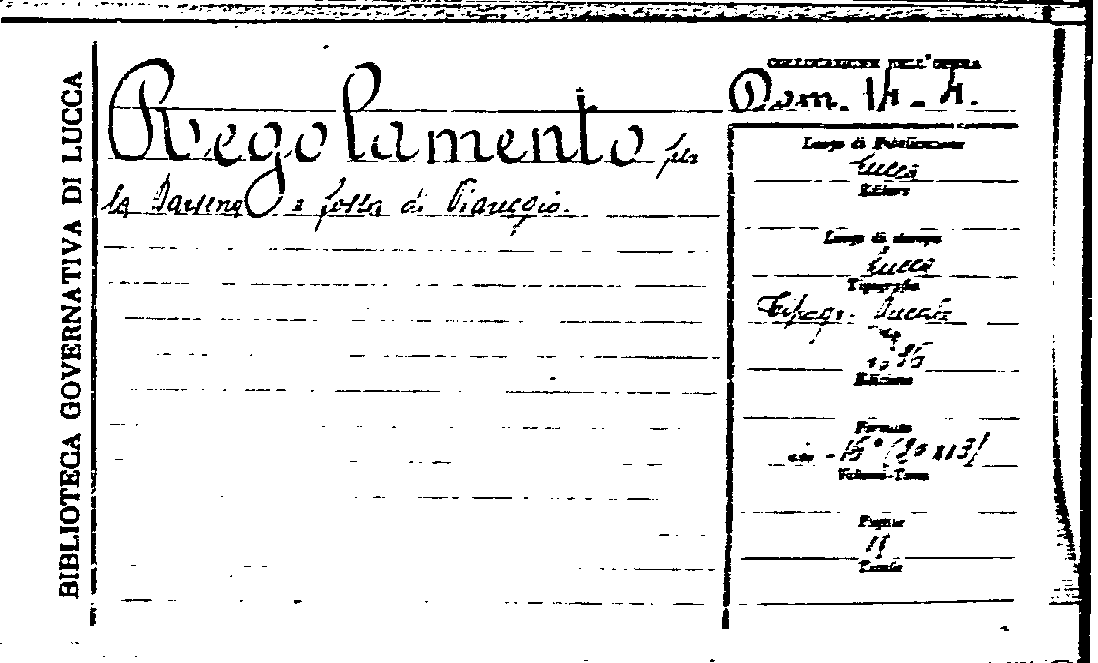 BIBLIOTECA GOVERNATIVA DI LUCCA
Regolamento per
la Darsena e fossa di Viareggio.
COLLOCAZIONE DELL'OPERA
Dom.
Luogo di Pubblicazione
Lucca
Editore
Luogo di stampa
Lucca
Tipografia
Tipogr. Ducale
Edizione
Formato
in - 16° (20x13)
Volumi-Tomi
Pagine
Tavole